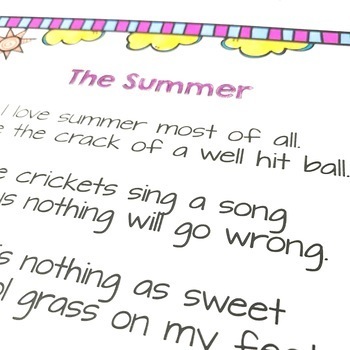 The Summer
I love summer most of all.
the crack of a well hit ball.
crickets sing a song
nothing will go wrong.
nothing as sweet
grass on my